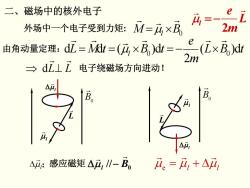 二、磁场中的核外电子
μ⃗ₗ = −(e/2m) L⃗
外场中一个电子受到力矩: M⃗ = μ⃗ₗ × B⃗₀
由角动量定理: dL⃗ = M⃗dt = (μ⃗ₗ × B⃗₀)dt = −(e/2m)(L⃗ × B⃗₀)dt
⇒ dL⃗ ⊥ L⃗ 电子绕磁场方向进动!
Δμ⃗ₗ B⃗₀ L⃗ μ⃗ₗ
μ⃗ₗ B⃗₀ L⃗ Δμ⃗ₗ
Δμ⃗ₗ: 感应磁矩 Δμ⃗ₗ // − B⃗₀
μ⃗ₑ = μ⃗ₗ + Δμ⃗ₗ